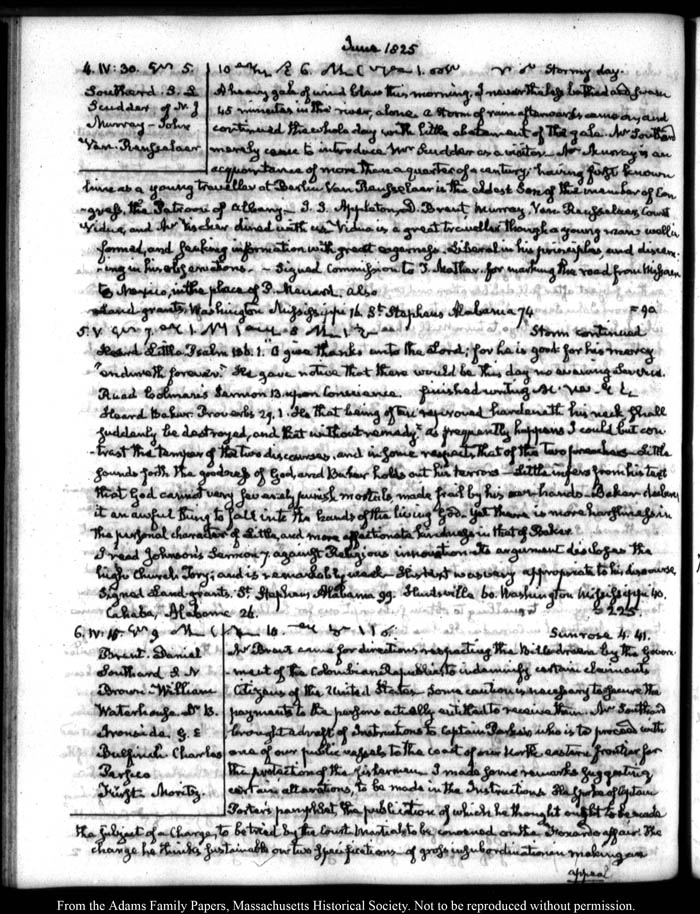 June 1825
4. IV:30. 5. Stormy day.
Southard. S. L A heavy gale of wind blew this morning. I nevertheless bathed and swam
Scudder of N. J 45 minutes in the river, alone. a Storm of rain afterwards came on, and
Murray – John continued the whole day with little abatement of the gale. Mr Southard
Van. Rensselaer. merely came to introduce Mr Scudder as a visitor. Mr Murray is an
acquaintance of more than a quarter of a century; having first known
him as a young traveller at Berlin. Van Rensselaer is the eldest Son of the member of Con-
-gress, the Patroon of Albany – J. S. Appleton, D. Brent, Murray, Van Rensselaer, Count
Vidua, and Mr Vischer dined with us. Vidua is a great traveller though a young man well in-
formed, and seeking information with great eagerness. Liberal in his principles and discern-
-ing in his observations. – Signed Commission to J. Mather. for marking the road from Missouri
to Mexico, in the place of P. Menard. also
Land grants, Washington Mississippi 16. St Stephens Alabama 74 = 90
5. V. Storm continued
Heard Little. Psalm 136. 1. "O give thanks unto the Lord; for he is good: for his mercy
"endureth forever." He gave notice that there would be this day no evening Service.
Read Colman's Sermon 13. upon Conscience. finished writing
Heard Baker. Proverbs 29. 1. He that being often reproved hardeneth his neck shall
suddenly be destroyed, and that without remedy" as frequently happens I could but con-
-trast the temper of the two discourses, and in some respects that of the two preachers – Little
sounds forth the goodness of God, and Baker holds out his terrors – Little infers from his text
that God cannot very severely punish mortals made frail by his own hands. Baker declares
it an awful thing to fall into the hands of the living God. Yet there is more harshness in
the personal character of Little, and more affectionate kindness in that of Baker.
I read Johnson's Sermon 7. against Religious innovation – Its argument discloses the
high Church Tory; and is remarkably weak – His text was very appropriate to his discourse.
Signed Land grants. St Stephens Alabama 99. Huntsville 60. Washington Mississippi 40.
Cahaba, Alabama 26. = 225.
6. IV. 15. Sunrose 4. 41.
Brent. Daniel Mr Brent came for directions respecting the Bills drawn by the Govern-
Southard S. L ment of the Colombian Republic to indemnify certain claimants
Brown – William Citizens of the United States – Some caution is necessary to secure the
Waterhouse. Dr B. payments to the persons actually entitled to receive them. Mr Southard
Ironside. G. E brought a draft of Instructions to Captain who is to proceed with
Bulfinch Charles one of our public vessels to the coast of our North eastern frontier for
Persico the protection of the fishermen. I made some remarks suggesting
Fürst. Moritz. certain alterations, to be made in the Instructions. He spoke of Captain
Porter's pamphlet, the publication of which he thought ought to be made
the subject of a Charge, to be tried by the Court Martial to be convened on the Foxardo affair. The
charge he thinks sustainable on two specifications – of gross insubordination in making an
appeal
From the Adams Family Papers, Massachusetts Historical Society. Not to be reproduced without permission.